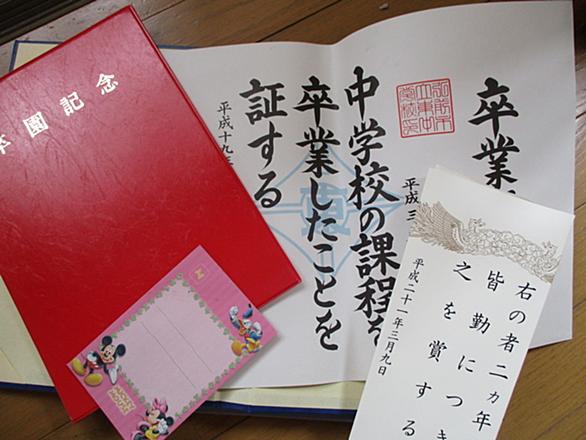 卒園記念
卒業
平成三
中学校の課程を
卒業したことを
証する
平成十九年
右の者二ヵ年
皆勤につき
之を賞する
平成二十一年三月九日